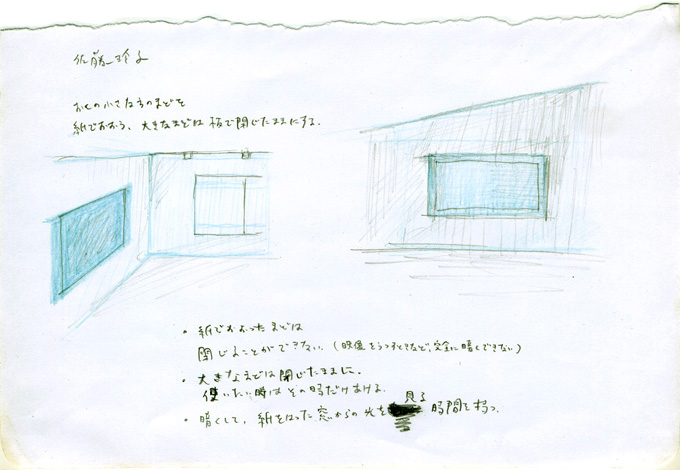 佐藤玲子
おくの小さな方のまどを
紙でおおう、大きなまどは板で閉じたままにする.
・紙でおおったまどは
閉じることができない.（映像をうつすときなど、完全に暗くできない）
・大きなまどは閉じたままに.
使いたい時はその時だけあける.
・暗くして、紙をはった窓からの光を見る時間を持つ.